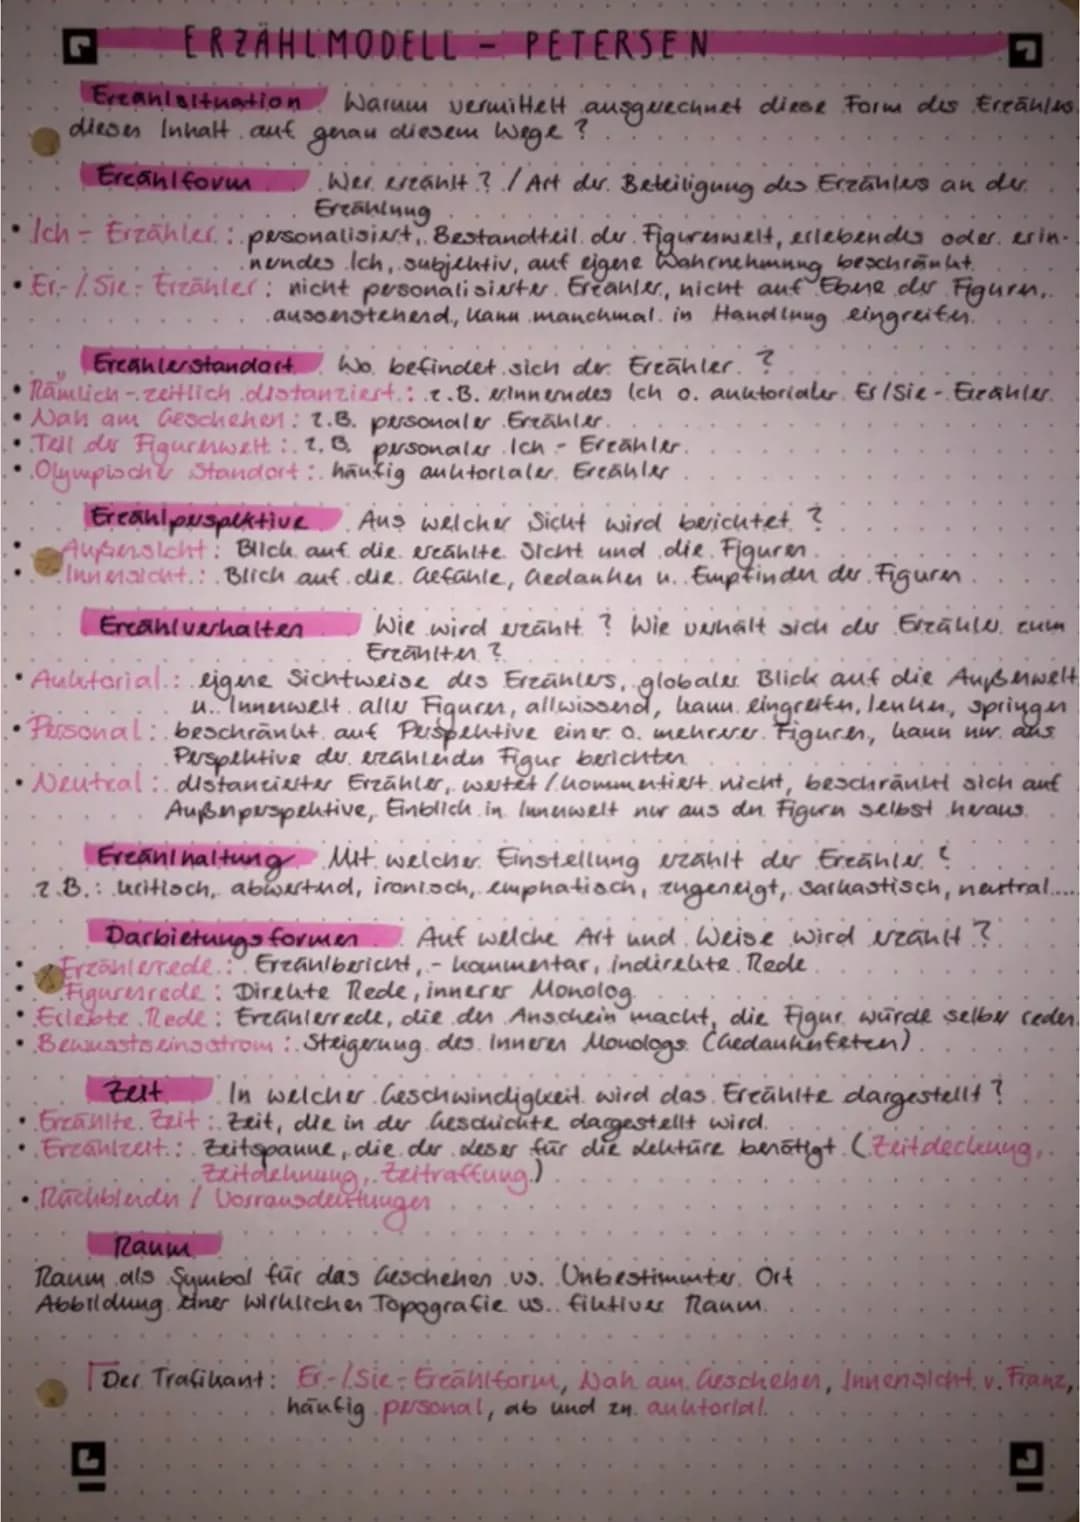 ERZÄHLMODELL - PETERSEN
Erzählsituation Warum vermittelt ausgerechnet diese Form des Erzählers
diesen Inhalt auf genau diesem Wege?
Erzählform Wer erzählt? / Art der Beteiligung des Erzählers an der
Erzählung
• Ich-Erzähler: personalisiert, Bestandteil der Figurenwelt, erlebendes oder erin-
nerndes Ich, subjektiv, auf eigene Wahrnehmung beschränkt.
• Er-/Sie-Erzähler: nicht personalisierter Erzähler, nicht auf Ebene der Figuren,
aussenstehend, kann manchmal in Handlung eingreifen.
Erzählerstandort Wo befindet sich der Erzähler?
• Räumlich-zeitlich distanziert: z.B. erinnerndes Ich o. auktorialer Er/Sie-Erzähler.
• Nah am Geschehen: z.B. personaler Erzähler.
• Teil der Figurenwelt: z.B. personaler Ich-Erzähler.
• Olympischer Standort: häufig auktorialer Erzähler
Erzählperspektive Aus welcher Sicht wird berichtet?
• Außensicht: Blick auf die erzählte Sicht und die Figuren.
• Innensicht: Blick auf die Gefühle, Gedanken u. Empfinden der Figuren.
Erzählverhalten Wie wird erzählt? Wie verhält sich der Erzähler zum
Erzählten?
• Auktorial: eigene Sichtweise des Erzählers, globaler Blick auf die Außenwelt
u. Innenwelt aller Figuren, allwissend, kann eingreifen, lenken, springen
• Personal: beschränkt auf Perspektive einer o. mehrerer Figuren, kann nur aus
Perspektive der erzählenden Figur berichten
• Neutral: distanzierter Erzähler, wertet/kommentiert nicht, beschränkt sich auf
Außenperspektive, Einblick in Innenwelt nur aus den Figuren selbst heraus.
Erzählhaltung Mit welcher Einstellung erzählt der Erzähler?
z.B.: kritisch, abwertend, ironisch, emphatisch, zugeneigt, sarkastisch, neutral....
Darbietungsformen Auf welche Art und Weise wird erzählt?
• Erzählerrede: Erzählbericht, -kommentar, indirekte Rede
• Figurenrede: Direkte Rede, innerer Monolog
• Erlebte Rede: Erzählerrede, die den Anschein macht, die Figur würde selber reden.
• Bewusstseinsstrom: Steigerung des inneren Monologs (Gedankenfetzen)
Zeit In welcher Geschwindigkeit wird das Erzählte dargestellt?
• Erzählte Zeit: Zeit, die in der Geschichte dargestellt wird.
• Erzählzeit: Zeitspanne, die der Leser für die Lektüre benötigt (Zeitdeckung,
Zeitdehnung, Zeitraffung)
• Rückblenden / Vorrausdeutungen
Raum
Raum als Symbol für das Geschehen vs. Unbestimmter Ort
Abbildung einer wirklichen Topografie vs. fiktiver Raum.
Der Trafikant: Er-/Sie-Erzählform, Nah am Geschehen, Innensicht v. Franz,
häufig personal, ab und zu auktorial.